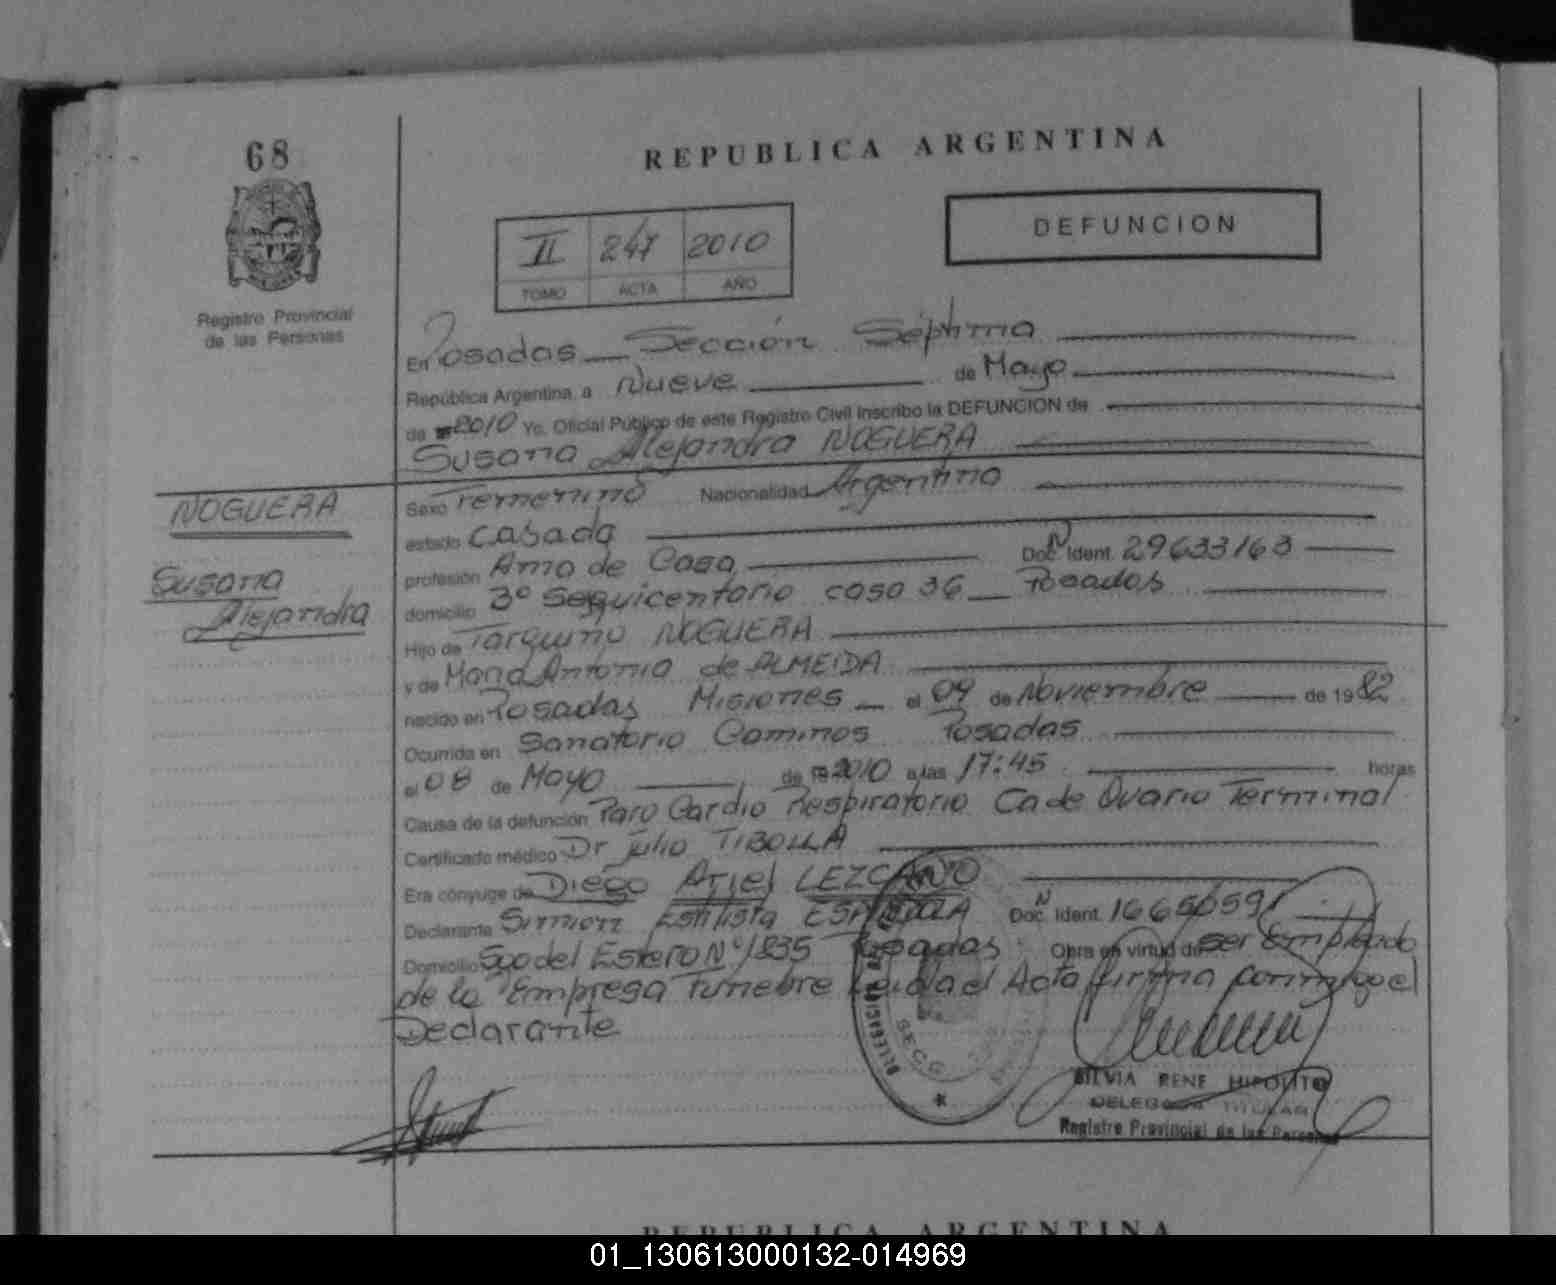 68
REPUBLICA ARGENTINA
DEFUNCION
II 247 2010
TOMO ACTA AÑO
Registro Provincial
de las Personas
En Posadas Sección Séptima
República Argentina, a Nueve de Mayo
de 2010 Yo, Oficial Público de este Registro Civil inscribo la DEFUNCION de
Susana Alejandra NOGUERA
NOGUERA
Susana
Alejandra
Sexo Femenino Nacionalidad Argentina
estado Casada
profesión Ama de Casa Doc. N Ident. 29633163
domicilio 3° Sequicentario casa 36 Posadas
Hijo de Tarquino NOGUERA
y de Maria Antonia de ALMEIDA
nacido en Posadas Misiones el 09 de Noviembre de 1982
Ocurrida en Sanatorio Caminos Posadas
el 08 de Mayo de 2010 a las 17:45 horas
Causa de la defunción Paro Cardio Respiratorio Ca de Ovario Terminal
Certificado médico Dr Julio TIBOLLA
Era cónyuge de Diego Ariel LEZCANO
Declarante Simion Estilista Doc. N Ident.
Domicilio Sgo del Estero N° 1835 Posadas Obra en virtud de ser Empleado
de la Empresa Funebre Leida el Acta firma conmigo el
Declarante
SECC
SILVIA RENE HIPOLITO
DELEGADA TITULAR
Registro Provincial de las Personas
REPUBLICA ARGENTINA
01_130613000132-014969